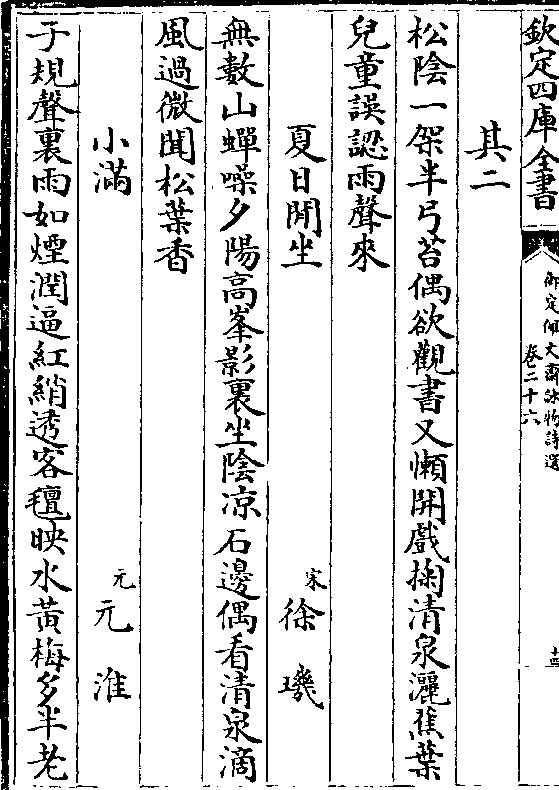 欽定四庫全書
御定佩文齋詠物詩選
卷二十六
十四
其二
松陰一架半弓苔偶欲觀書又懶開戲掬清泉灑蕉葉
兒童誤認雨聲來
夏日閒坐
宋徐璣
無數山蟬噪夕陽高峯影裏坐陰凉石邊偶看清泉滴
風過微聞松葉香
小滿
元元淮
子規聲裏雨如煙潤逼紅綃透客氊映水黃梅多半老